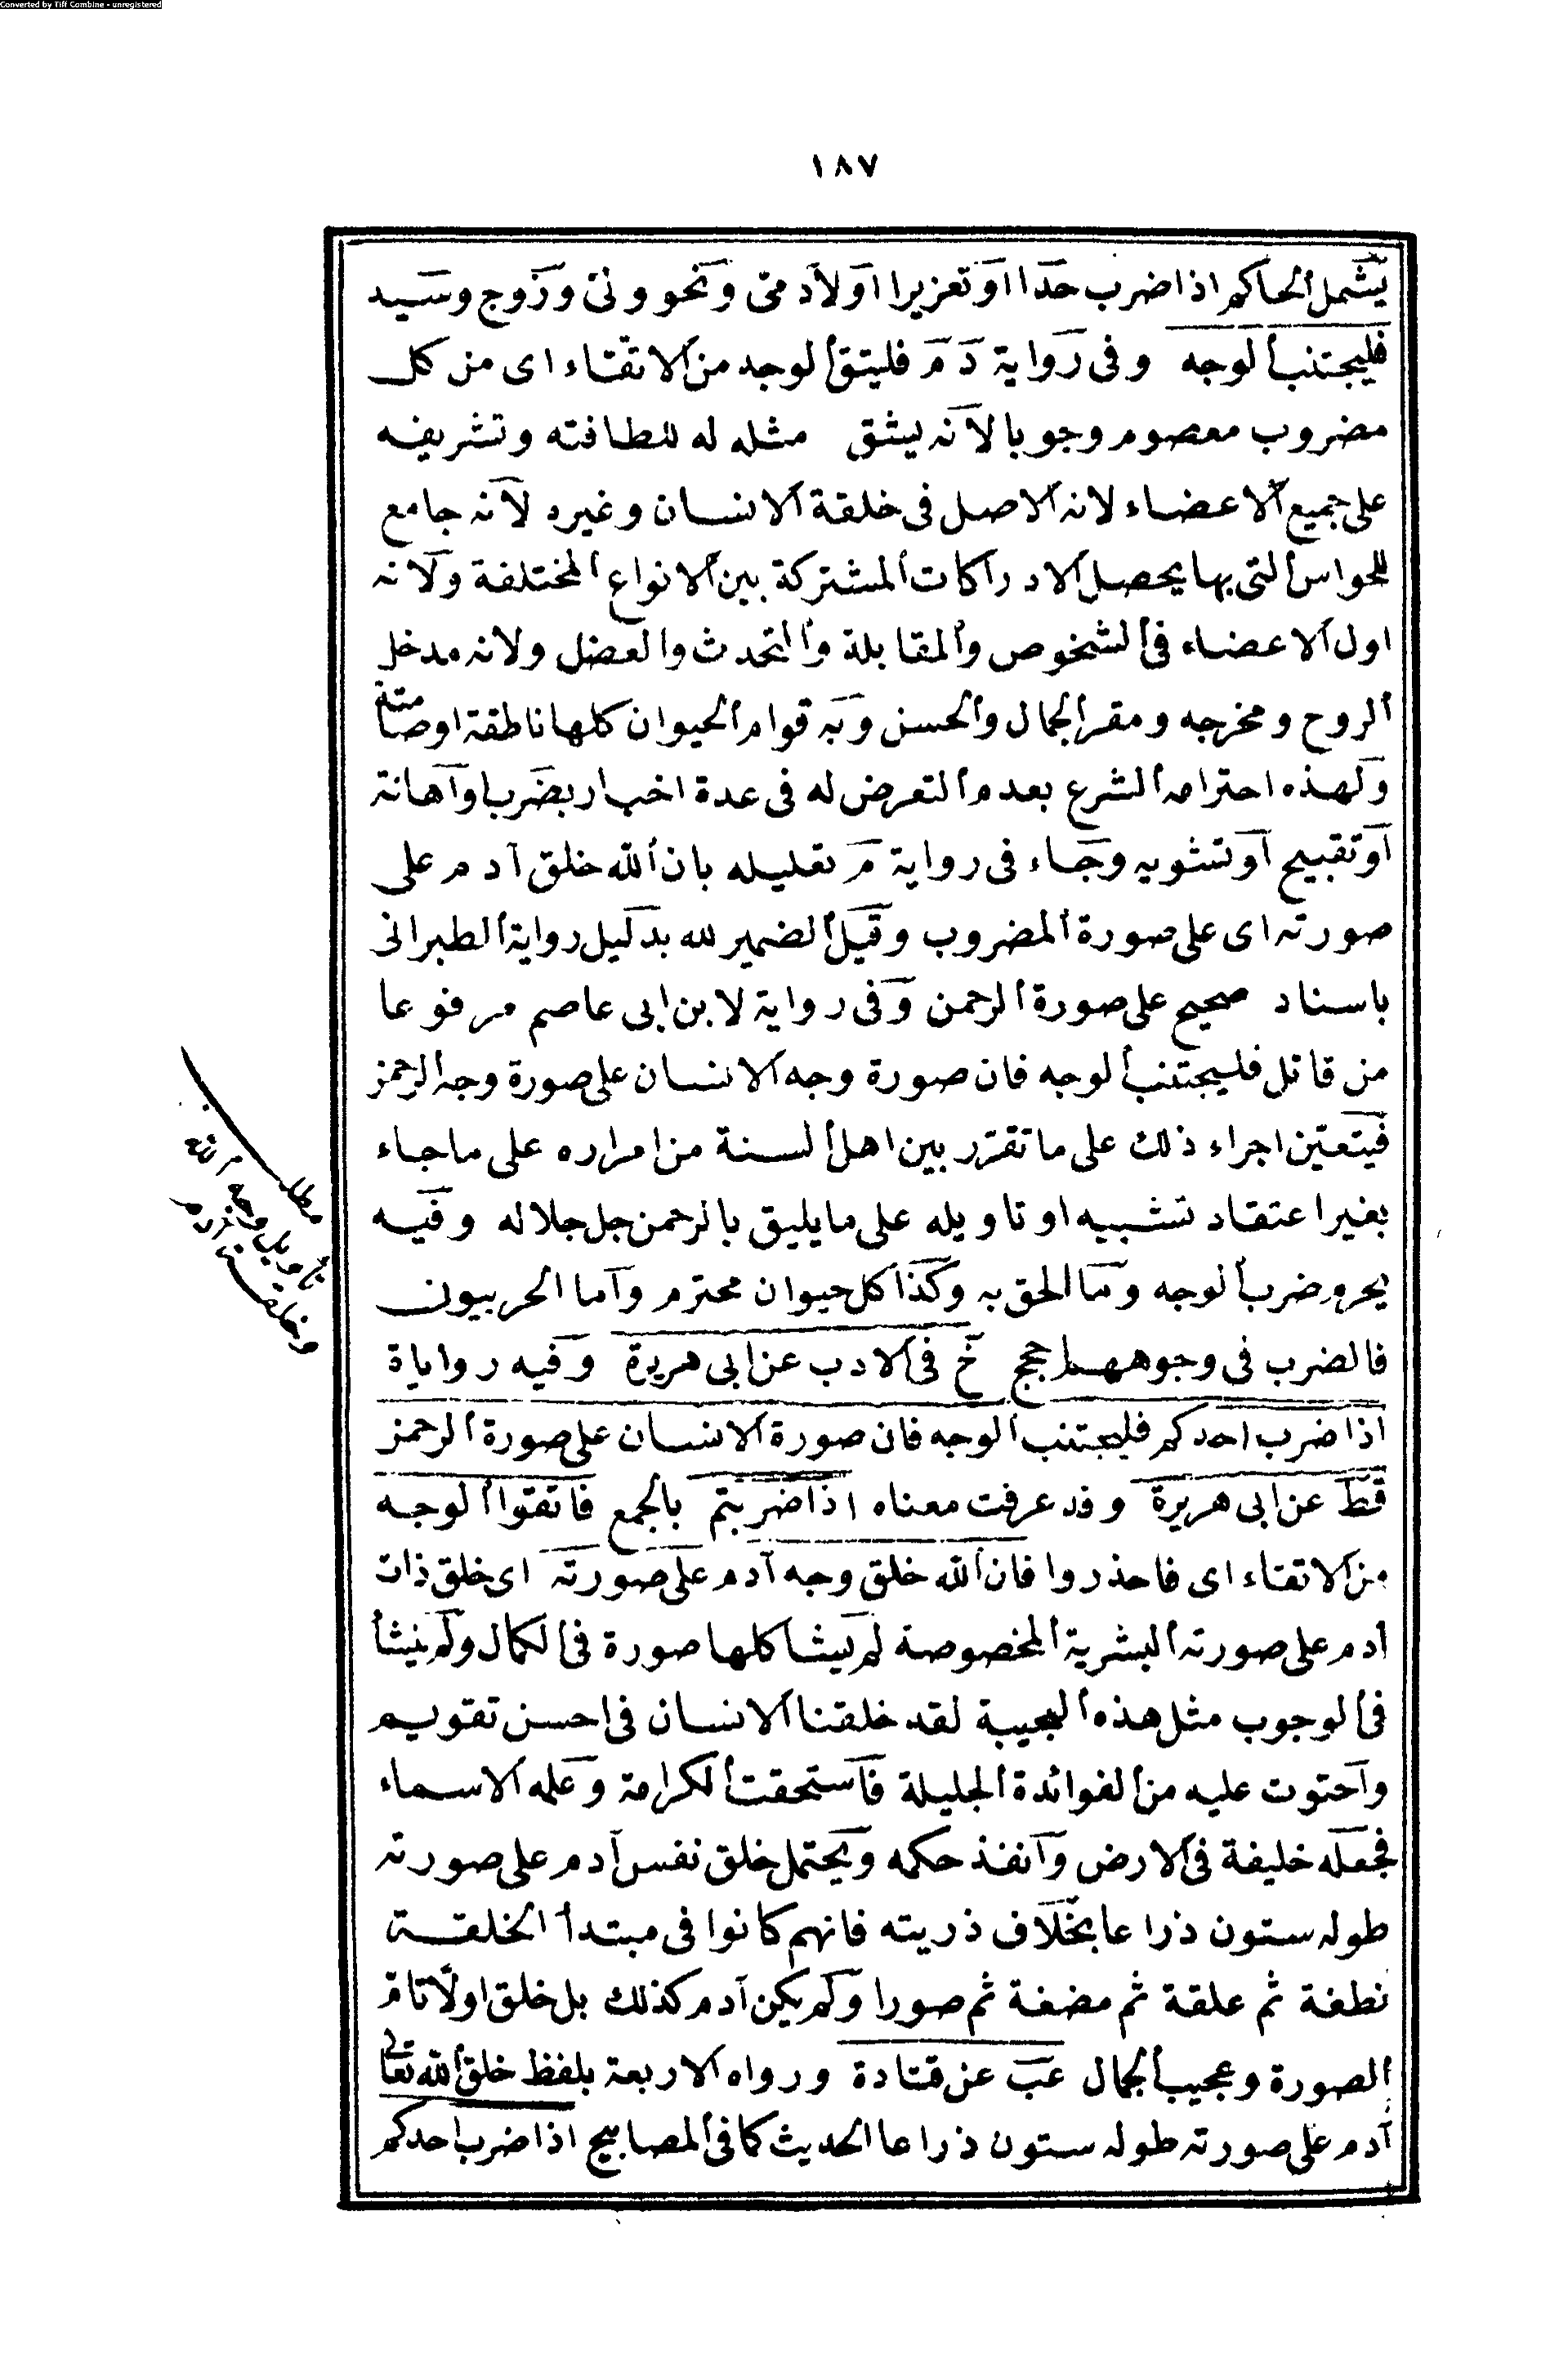 Converted by Tiff Combine - unregistered
١٨٧
يشمل الحاكم اذا ضرب حدا او تعزيرا او لآدمى ونحو ولى وزوج وسيد
فليجتنب الوجه وفى رواية د م فليتق الوجه من الاتقاء اى من كل
مضروب معصوم وجوبا لانه ليشق مثله له للطافته وتشريفه
على جميع الاعضاء لانه الاصل فى خلقة الانسان وغيره لانه جامع
للحواس التى بها يحصل الادراكات المشتركة بين الانواع المختلفة ولانه
اول الاعضاء فى الشخوص والمقابلة والتحدث والعضل ولانه مدخل
الروح ومخرجه ومقر الجمال والحسن وبه قوام الحيوان كلها ناطقة او صامتة
ولهذه احترامه الشرع بعدم التعرض له فى عدة اخبار بضرب او اهانة
او تقبيح او تشويه وجاء فى رواية م تعليله بان الله خلق آدم على
صورته اى على صورة المضروب وقيل الضمير لله بدليل رواية الطبرانى
باسناد صحيح على صورة الرحمن وفى رواية لابن ابى عاصم مرفوعا
من قاتل فليجتنب الوجه فان صورة وجه الانسان على صورة وجه الرحمن
فيتعين اجراء ذلك على ما تقرر بين اهل السنة من امراره على ما جاء
بغير اعتقاد تشبيه او تاويله على ما يليق بالرحمن جل جلاله وفيه
يحرم ضرب الوجه وما الحق به وكذا كل حيوان محترم واما الحربيون
فالضرب فى وجوههم انجح خ فى الادب عن ابى هريرة وفيه رواياة
اذا ضرب احدكم فليجتنب الوجه فان صورة الانسان على صورة الرحمن
قط عن ابى هريرة وقد عرفت معناه اذا ضربتم بالجمع فاتقوا الوجه
من الاتقاء اى فاحذروا فان الله خلق وجه آدم على صورته اى خلق ذات
أدم على صورته البشرية المخصوصة لم يشاكلها صورة فى الكمال ولم ينشأ
فى الوجوب مثل هذه العجيبة لقد خلقنا الانسان فى احسن تقويم
واحتوت عليه من الفوائدة الجليلة فاستحقت الكرامة وعلمه الاسماء
فجعله خليفة فى الارض وانفذ حكمه ويحتمل خلق نفس آدم على صورته
طوله ستون ذراعا بخلاف ذريته فانهم كانوا فى مبتدأ الخلقة
نطفة ثم علقة ثم مضغة ثم صورا ولم يكن آدم كذلك بل خلق اولا تام
الصورة وعجيب الجمال عب عن قتادة ورواه الاربعة بلفظ خلق الله تعالى
آدم على صورته طوله ستون ذراعا الحديث كما فى المصابيح اذا ضرب احدكم
مطلب
تأويل وجه الله
وخلقة آدم